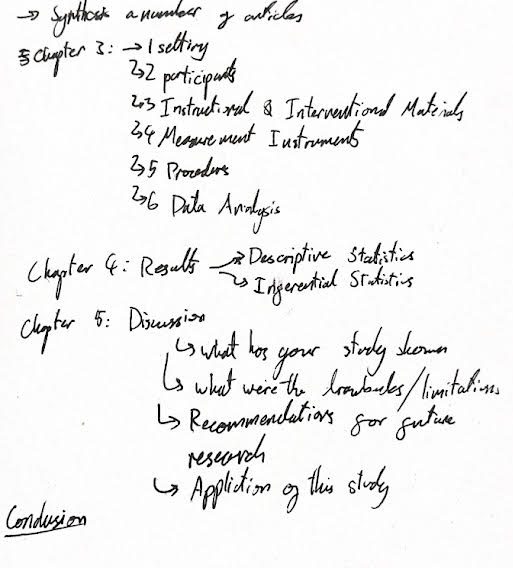 → Synthesis a number of articles
Chapter 3: → 1 setting
↳ 2 participants
↳ 3 Instructional & Interventional Materials
↳ 4 Measurement Instruments
↳ 5 Procedures
↳ 6 Data Analysis
Chapter 4: Results → Descriptive Statistics
↳ Inferential Statistics
Chapter 5: Discussion
↳ what has your study shown
↳ what were the drawbacks/limitations
↳ Recommendations for future
research
↳ Appliction of this study
Conclusion